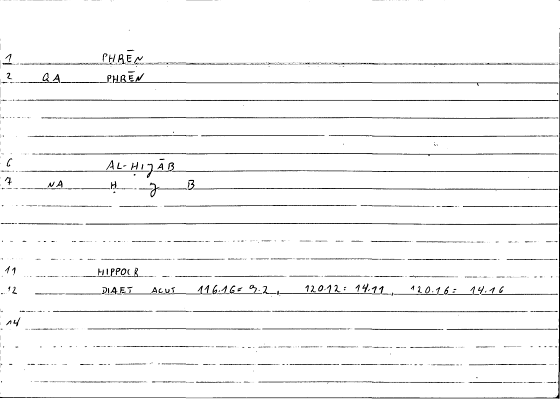 1 PHRĒN
2 QA PHRĒN
6 AL-ḤIJĀB
7 NA Ḥ J B
11 HIPPOCR
12 DIAET ACUT 116.16= 9.2, 120.12: 14.11, 120.16: 14.16
14